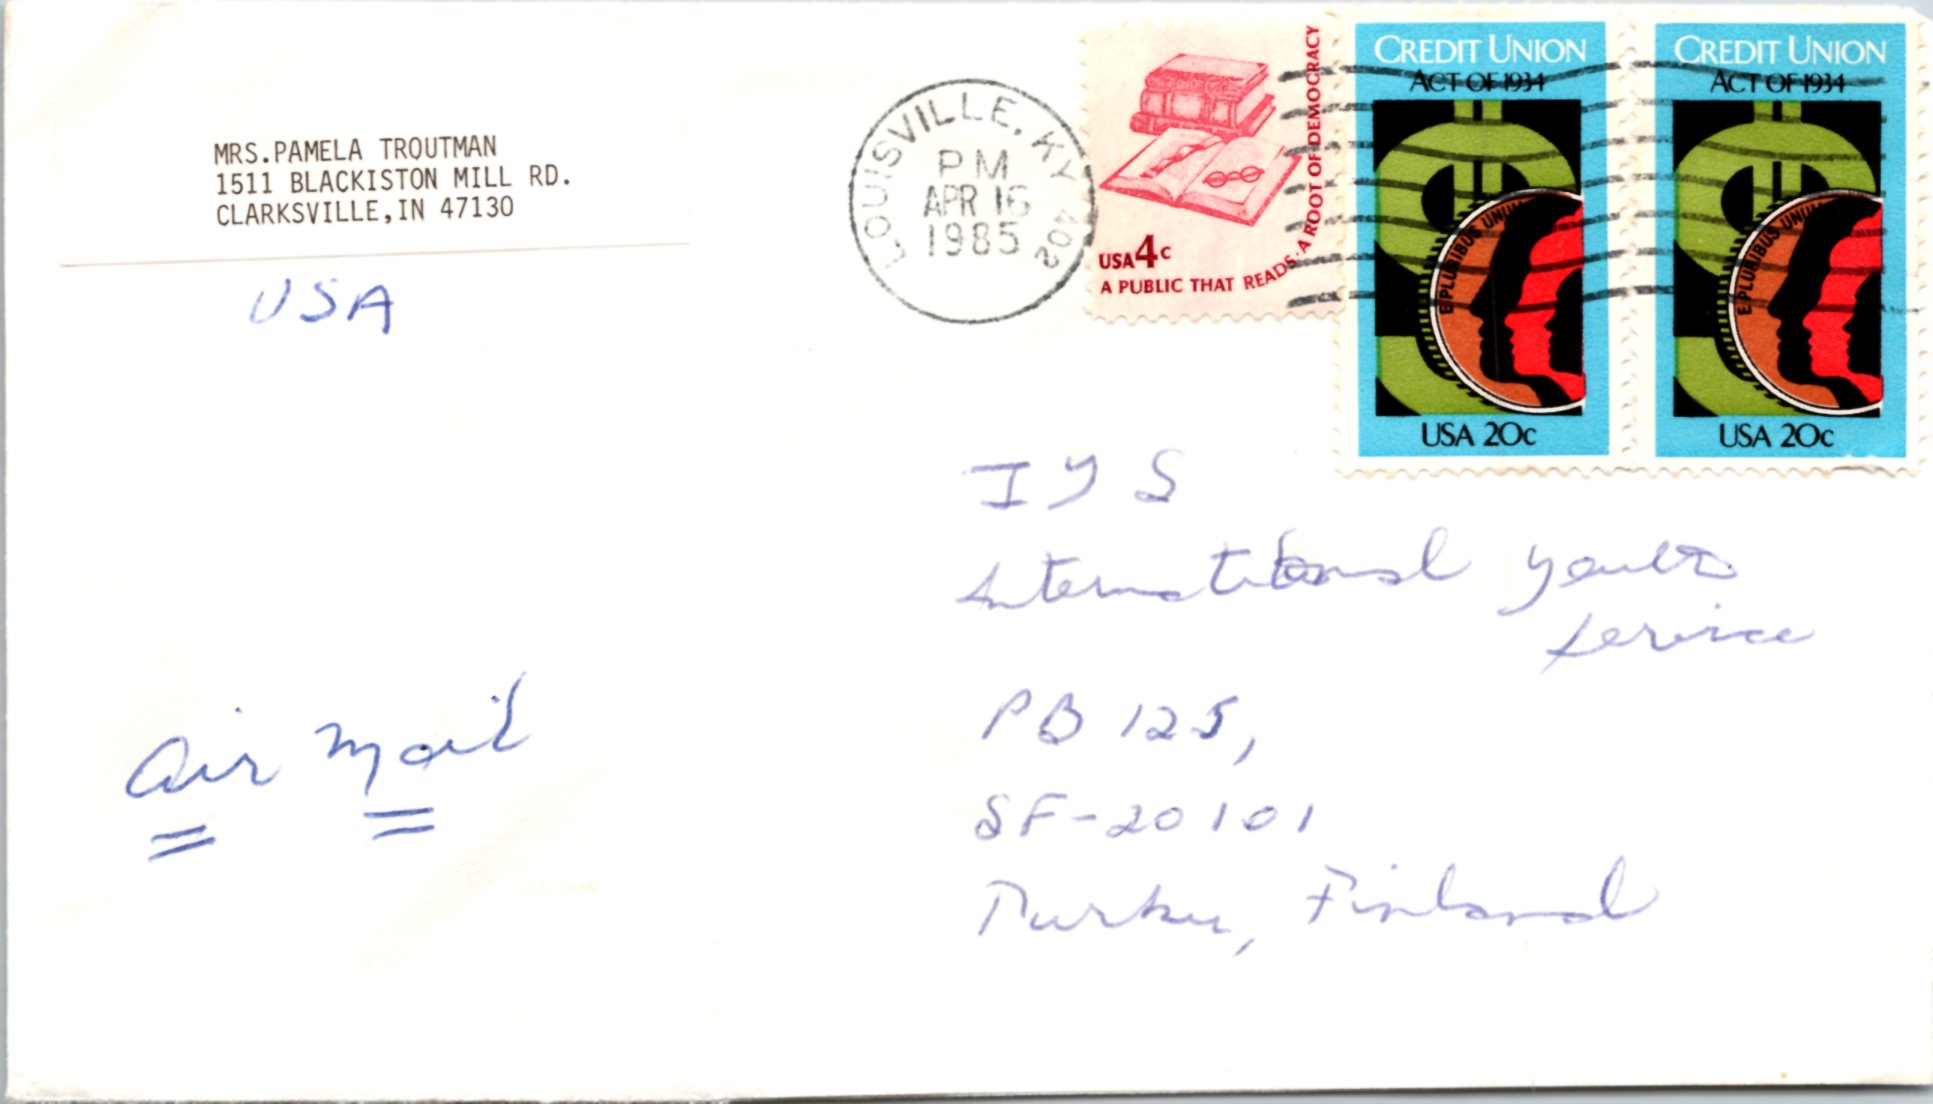 MRS.PAMELA TROUTMAN
1511 BLACKISTON MILL RD.
CLARKSVILLE,IN 47130
USA
LOUISVILLE, KY 402
PM
APR 16
1985
USA 4c
A PUBLIC THAT READS · A ROOT OF DEMOCRACY
CREDIT UNION
ACT OF 1934
E PLURIBUS UNUM
USA 20c
CREDIT UNION
ACT OF 1934
E PLURIBUS UNUM
USA 20c
IYS
International Youth
Service
PB 125,
SF-20101
Turku, Finland
Air Mail